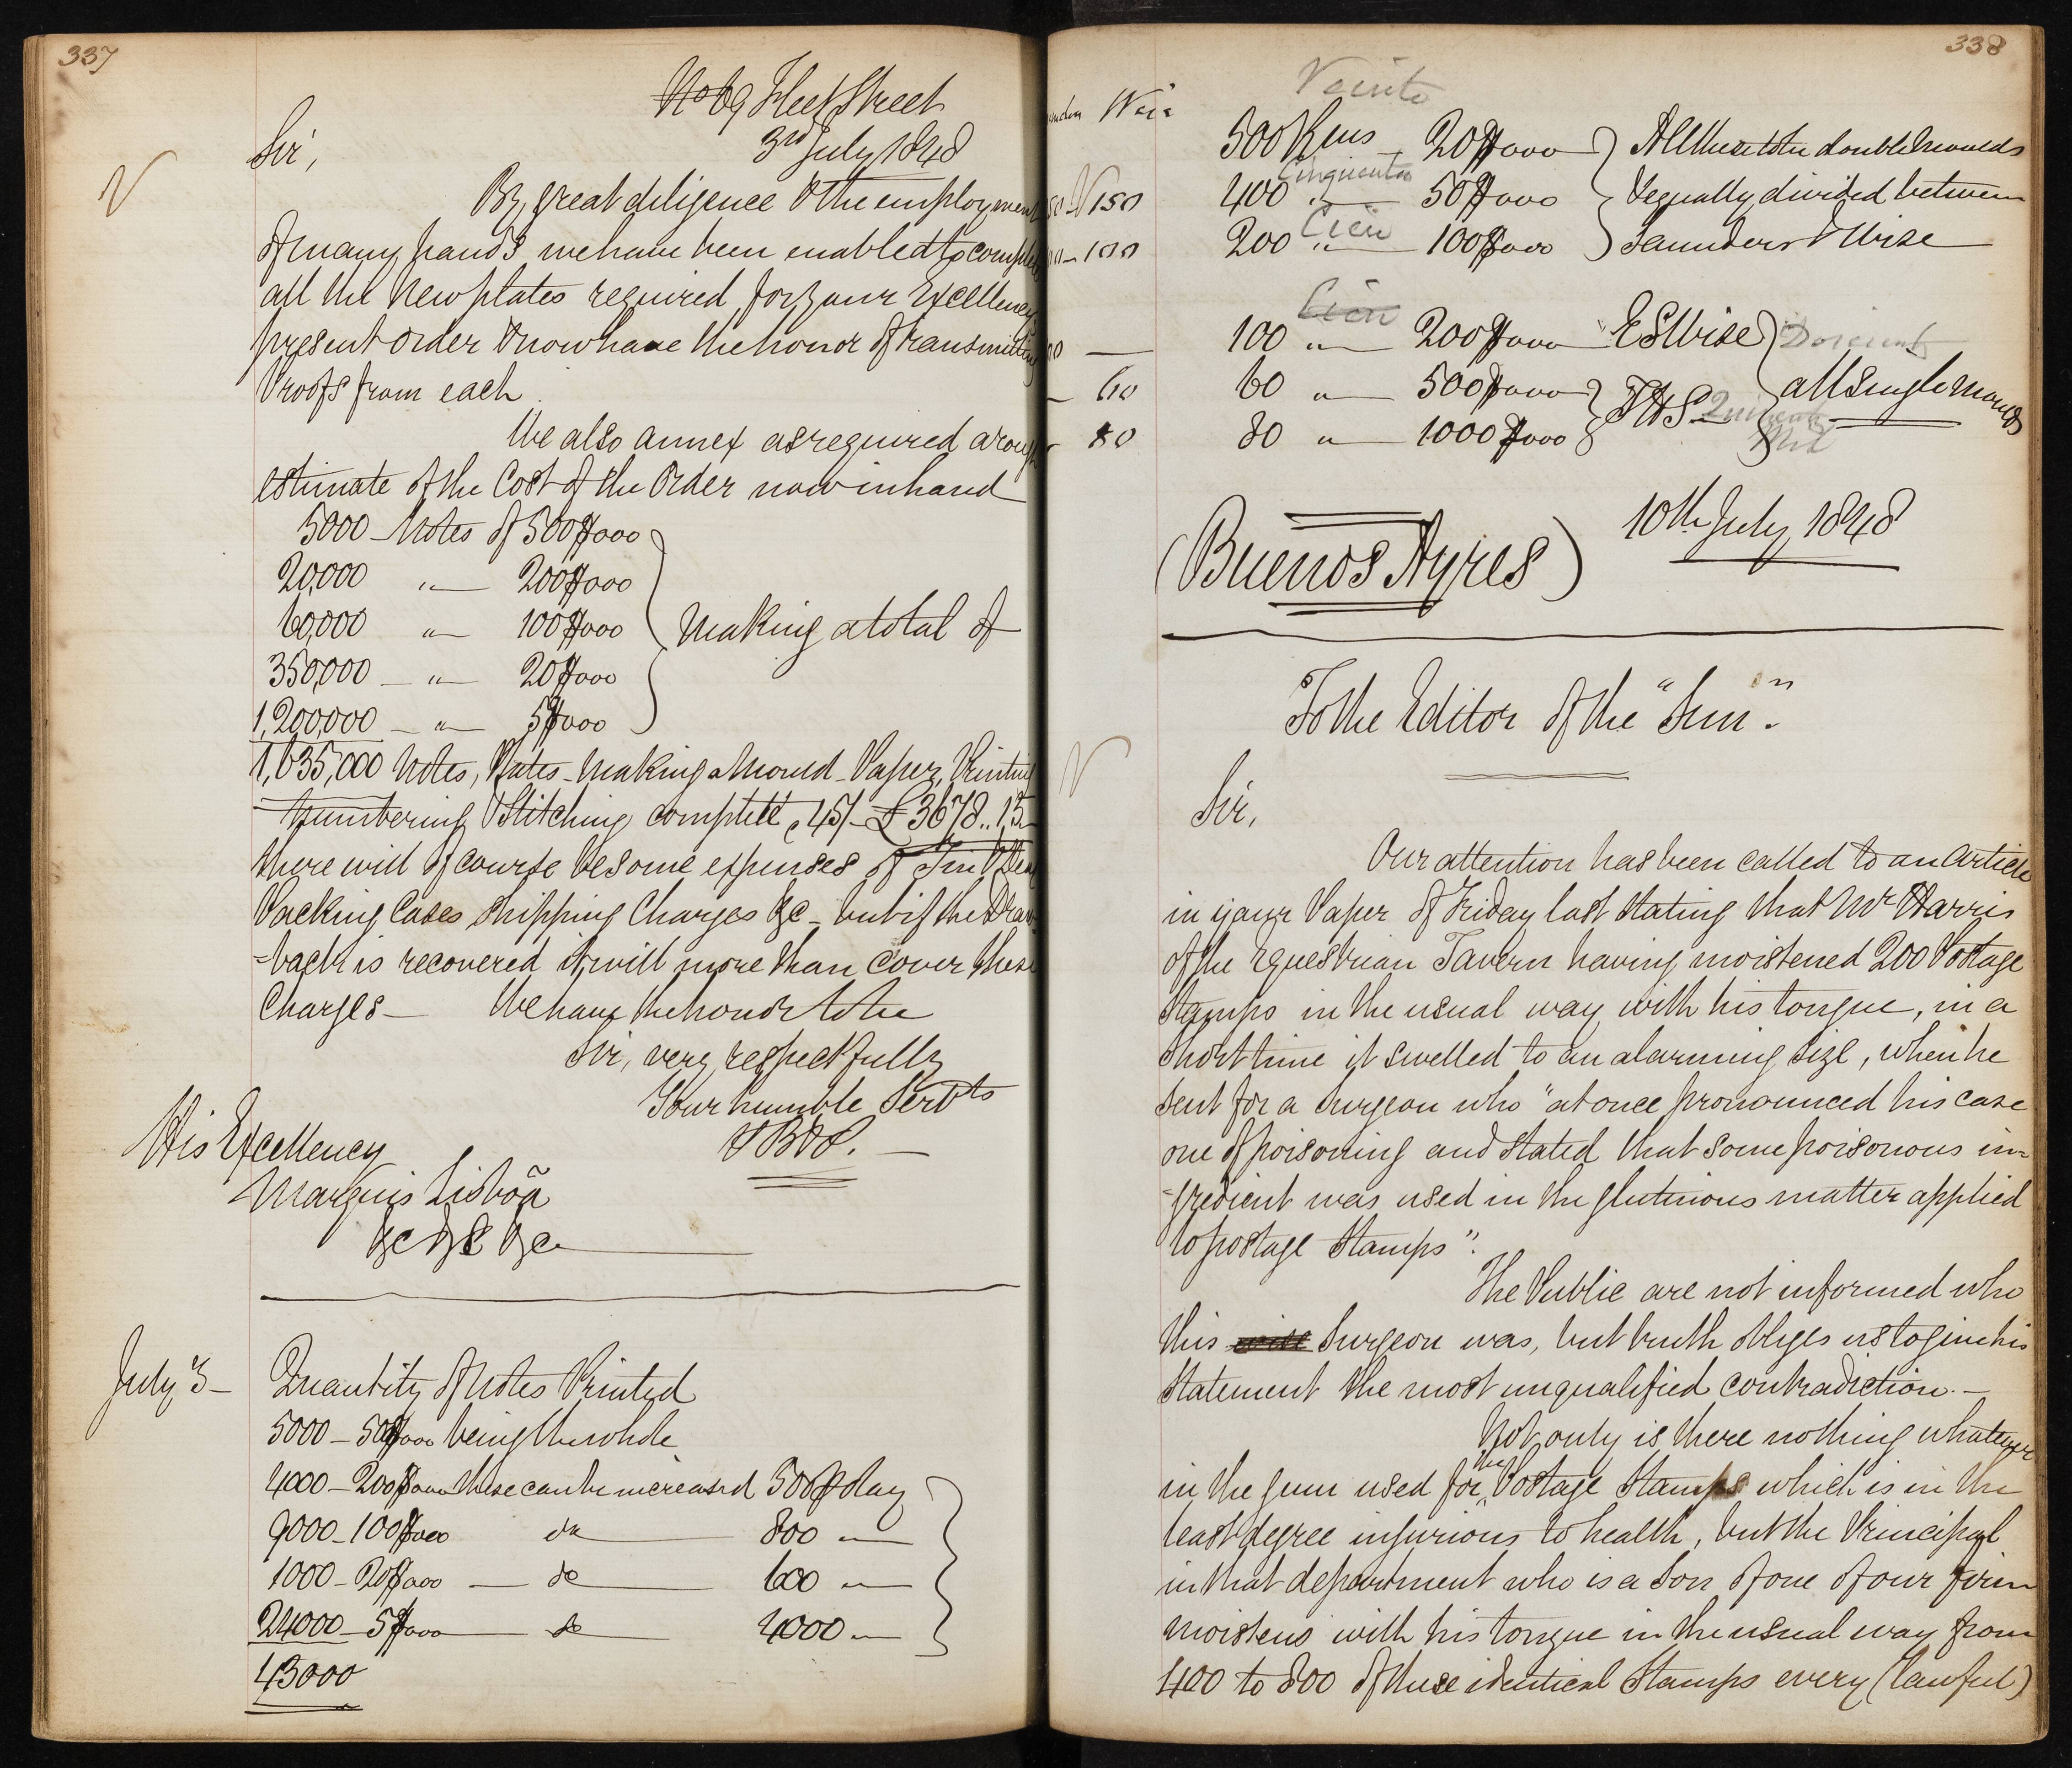 337
No 69 Fleet Street
3rd July 1848
Sir,
By great diligence & the employment
of many hands we have been enabled to complete
all the New plates required for your Excellency
present order & now have the honor of transmitting
Proofs from each
We also annex as required a rough
estimate of the Cost of the Order now in hand
5000 – Notes of 500$000
20,000 " — 200$000
60,000 " — 100$000
350,000 — " — 20$000
1,200,000 — " — 5$000
Making a total of
1,635,000 Notes, Plates – Making a Mould – Paper, Printing
Numbering & Stitching complete, 45/– £3678..15
there will of course be some expenses of Tin &
Packing Cases Shipping Charges &c – but if the Draw
=back is recovered it will more than cover these
Charges — We have the honor to be
Sir, very respectfully
Your humble Servts
PB&P. —
His Excellency
Marquis Lisbõa
&c &c &c
July 3 – Quantity of Notes Printed
5000 – 500$000 being the whole
4000 – 200$000 these can be increased 500 ⅌ day
9000 – 100$000 do 800 "
1000 – 20$000 — do 600 "
24000 – 5$000 do 4000 "
43000
338
Wise
150
100
60
80
Veinte
500 Rms – 20$000
Cinquenta
400 " 50$000
Cien
200 " 100$000
All these to be double moulds
& equally divided between
Saunders & Wise
Cien
100 " 200$000 – E S Wise
60 " 500$000
80 " 1000$000
THS
all single moulds
Mil
(Buenos Ayres)
10th July 1848
To the Editor of the "Sun".
Sir,
Our attention has been called to an Article
in your Paper of Friday last stating that Mr Harris
of the Equestrian Tavern having moistened 200 Postage
Stamps in the usual way with his tongue, in a
short time it swelled to an alarming size, when he
sent for a Surgeon who "at once pronounced his case
one of poisoning and stated that some poisonous in=
=gredient was used in the glutinous matter applied
to postage Stamps".
The Public are not informed who
this Surgeon was, but truth obliges us to give his
Statement the most unqualified contradiction. –
Not only is there nothing whatever
in the gum used for the Postage Stamps which is in the
least degree injurious to health, but the Principal
in that department who is a Son of one of our firm
moistens with his tongue in the usual way from
400 to 800 of these identical Stamps every (lawful)